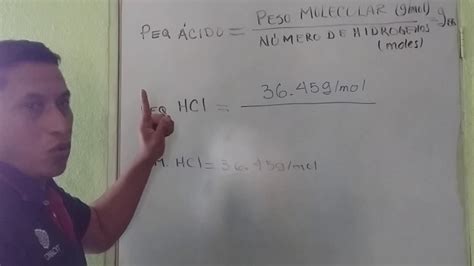 PEQ ÁCIDO = PESO MOLECULAR (g/mol) / NÚMERO DE HIDROGENOS (moles) =
EQ HCl = 36.45g/mol
M. HCl = 36.45g/mol